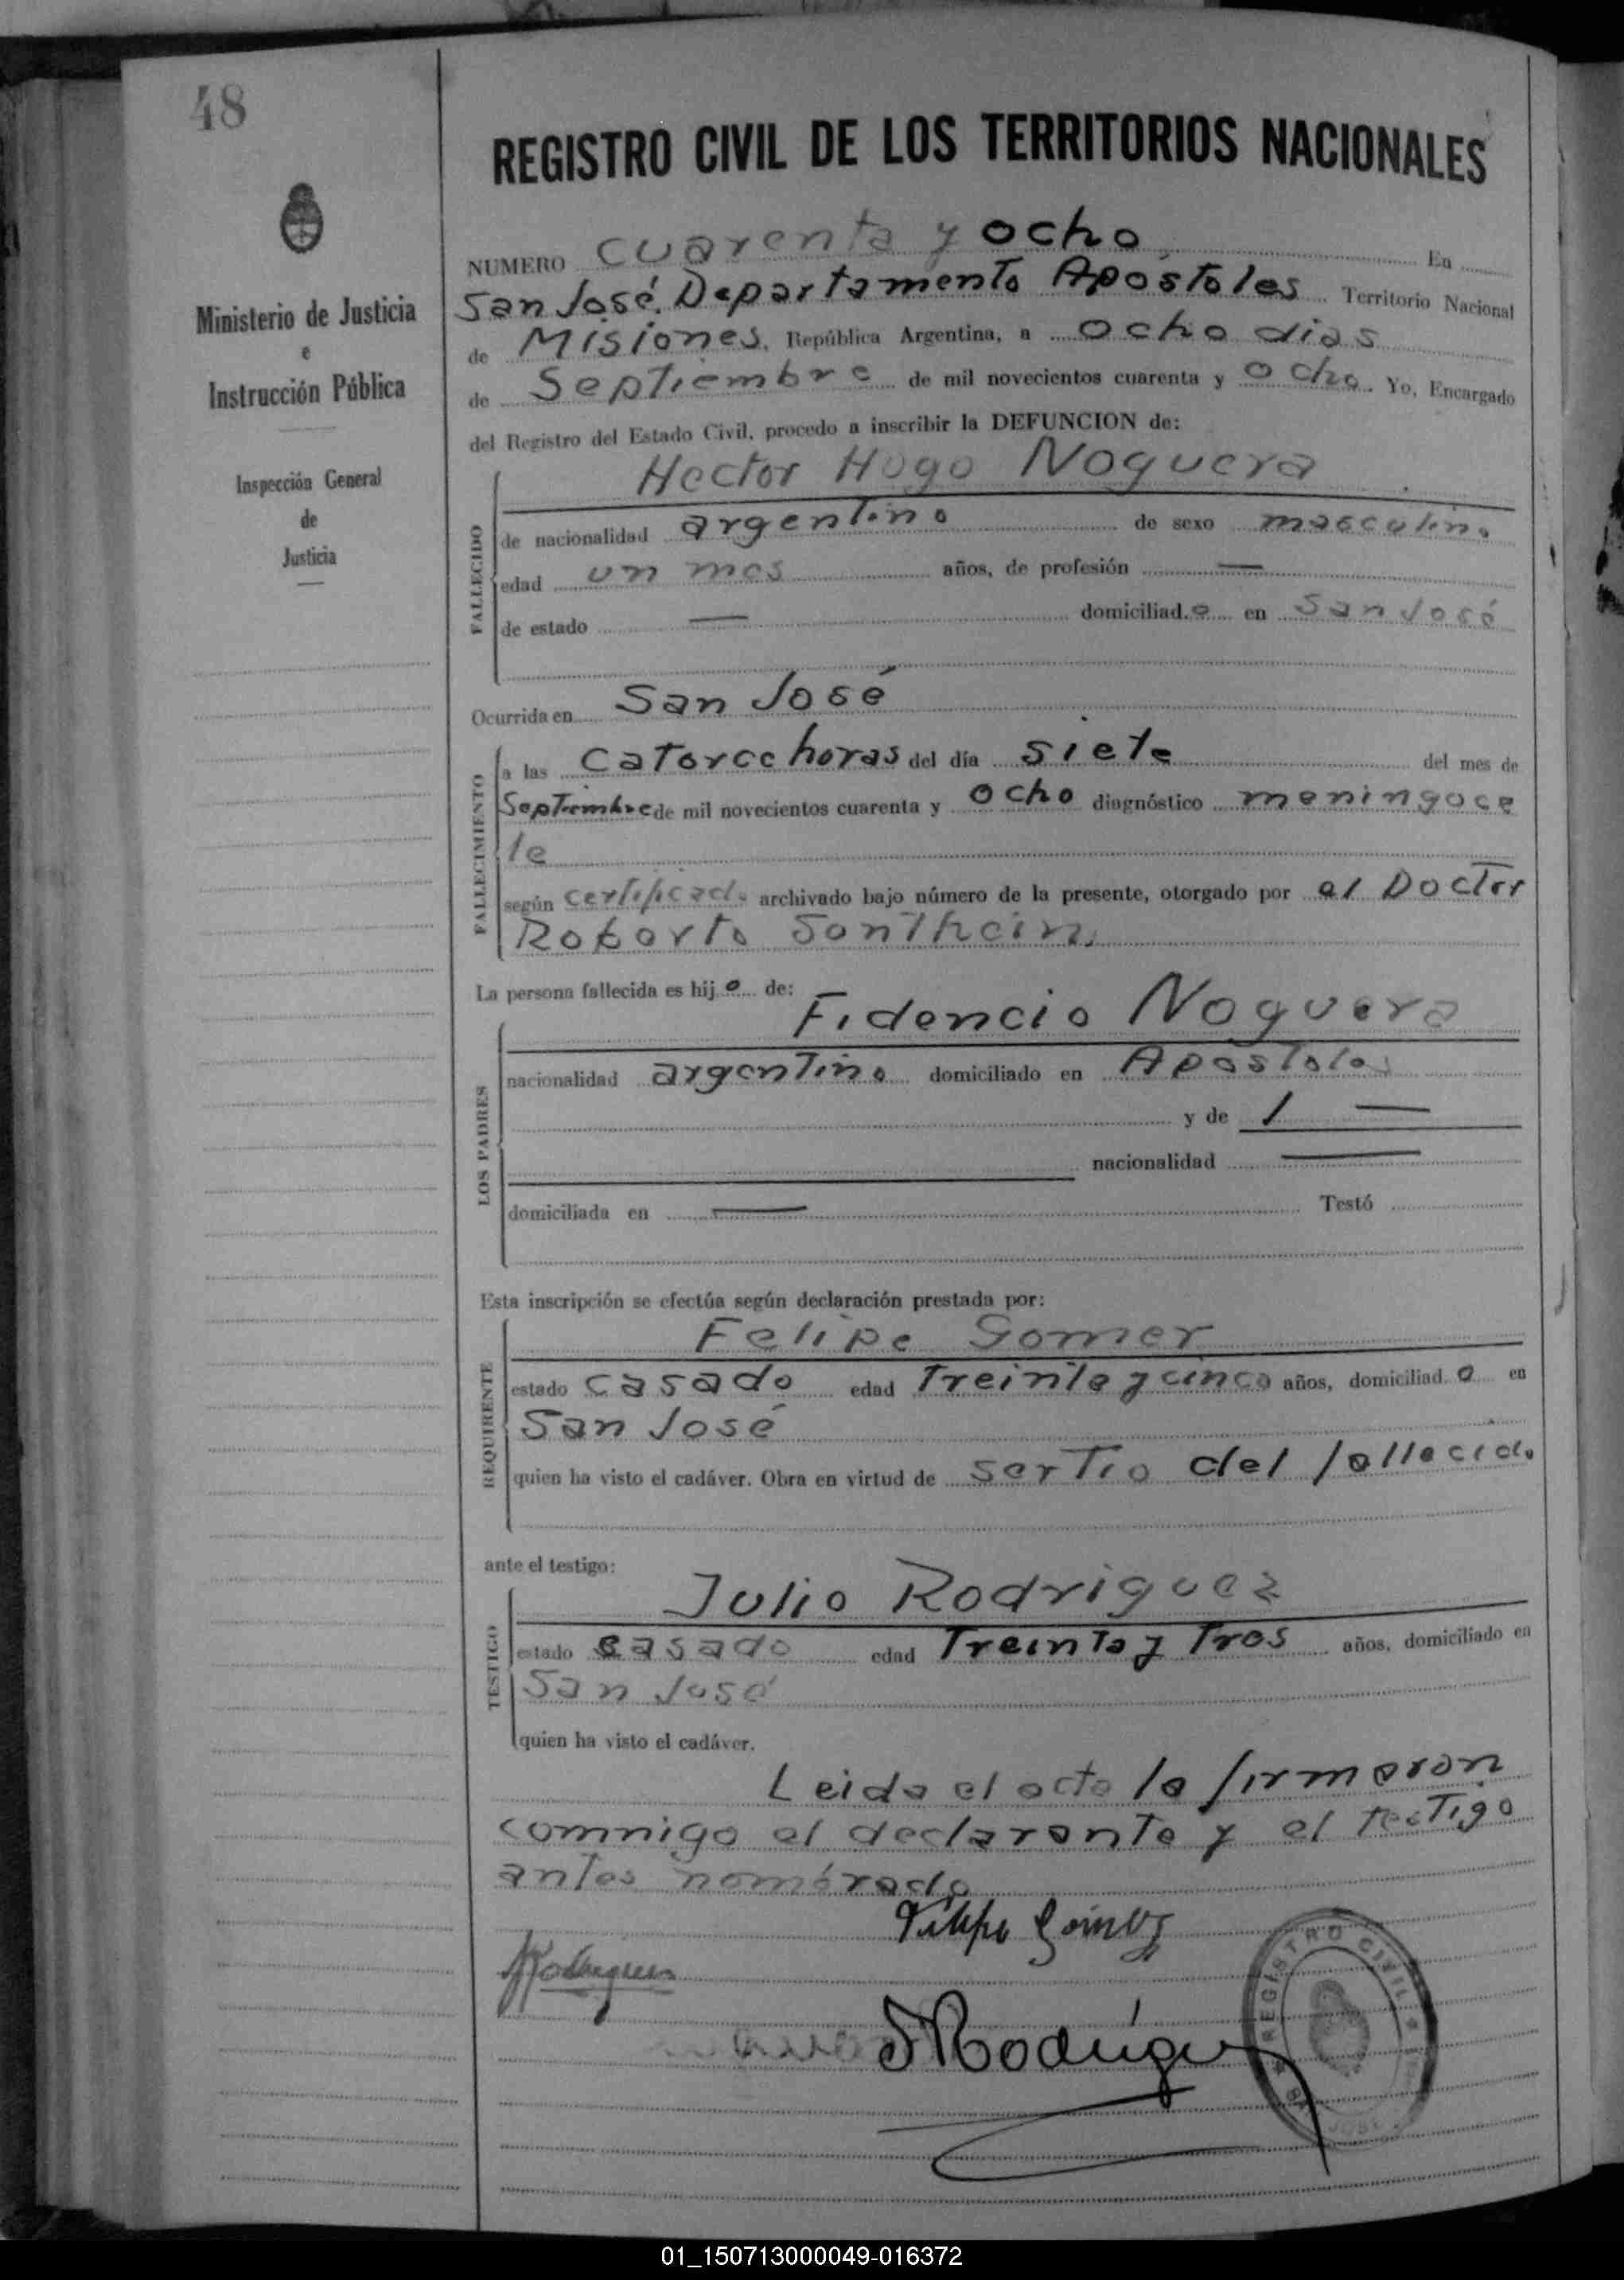 48
REGISTRO CIVIL DE LOS TERRITORIOS NACIONALES
Ministerio de Justicia
e
Instrucción Pública
Inspección General
de
Justicia
NUMERO cuarenta y ocho En
San José. Departamento Apóstoles Territorio Nacional
de Misiones, República Argentina, a ocho dias
de Septiembre de mil novecientos cuarenta y ocho. Yo, Encargado
del Registro del Estado Civil, procedo a inscribir la DEFUNCION de:
Hector Hugo Noguera
FALLECIDO
de nacionalidad argentino de sexo masculino
edad un mes años, de profesión —
de estado — domiciliad.o en San José
Ocurrida en San José
FALLECIMIENTO
a las catorce horas del día siete del mes de
Septiembre de mil novecientos cuarenta y ocho diagnóstico meningoce
le
según certificado archivado bajo número de la presente, otorgado por el Doctor
Roberto Sontheim
La persona fallecida es hij o de:
Fidencio Noguera
LOS PADRES
nacionalidad argentino domiciliado en Apostoles
y de / —
nacionalidad —
domiciliada en — Testó
Esta inscripción se efectúa según declaración prestada por:
Felipe Gomer
REQUIRENTE
estado casado edad Treinta y cinco años, domiciliad o en
San José
quien ha visto el cadáver. Obra en virtud de ser Tio del fallecido
ante el testigo:
Julio Rodriguez
TESTIGO
estado casado edad Treinta y Tres años, domiciliado en
San José
quien ha visto el cadáver.
Leida el acta la firmaron
comnigo el declarante y el testigo
antes nombrado
Felipe Gomez
JRodriguez
JRodriguez
REGISTRO CIVIL
SAN JOSE
01_150713000049-016372